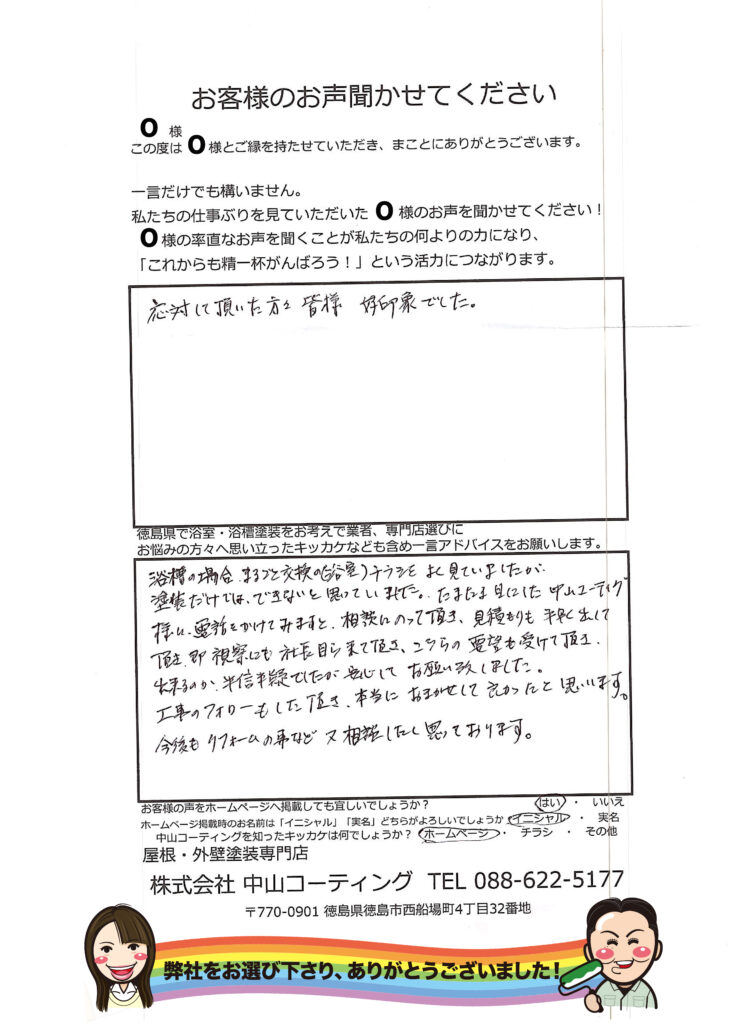 お客様のお声聞かせてください
O 様
この度は O 様とご縁を持たせていただき、まことにありがとうございます。
一言だけでも構いません。
私たちの仕事ぶりを見ていただいた O 様のお声を聞かせてください！
O 様の率直なお声を聞くことが私たちの何よりの力になり、
「これからも精一杯がんばろう！」という活力につながります。
応対して頂いた方々 皆様 好印象でした。
徳島県で浴室・浴槽塗装をお考えで業者、専門店選びに
お悩みの方々へ思い立ったキッカケなども含め一言アドバイスをお願いします。
浴槽の場合、まるごと交換の(浴室)チラシをよく見ていましたが、
塗装だけでは、できないと思っていました。たまたま目にした中山コーティング
様に、電話をかけてみますと、相談にのって頂き、見積もりも手早く出して
頂き、即視察にも社長自ら来て頂き、こちらの要望も受けて頂き、
出来るのか、半信半疑でしたが安心してお願い致しました。
工事のフォローもして頂き、本当におまかせして良かったと思います。
今後もリフォームの事など又相談したく思っております。
お客様の声をホームページへ掲載しても宜しいでしょうか？ はい ・ いいえ
ホームページ掲載時のお名前は「イニシャル」「実名」どちらがよろしいでしょうか イニシャル ・ 実名
中山コーティングを知ったキッカケは何でしょうか？ ホームページ ・ チラシ ・ その他
屋根・外壁塗装専門店
株式会社 中山コーティング TEL 088-622-5177
〒770-0901 徳島県徳島市西船場町4丁目32番地
弊社をお選び下さり、ありがとうございました！